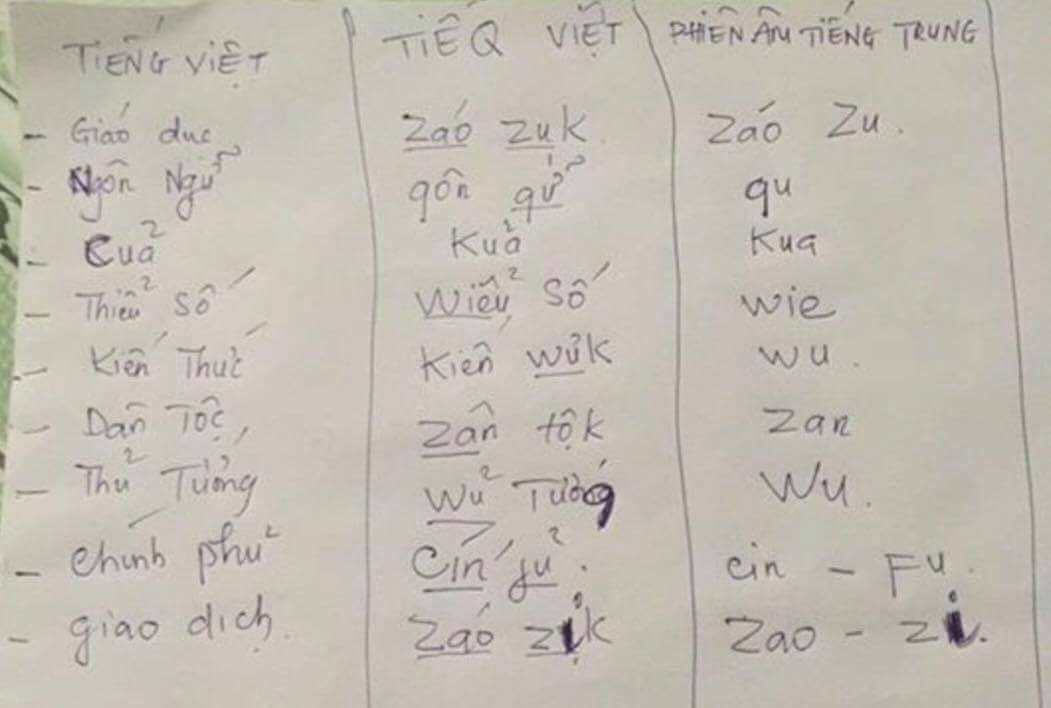 TIẾNG VIỆT TIẾQ VIỆT PHIÊN ÂM TIẾNG TRUNG
- Giáo dục Záo zuk Záo Zu.
- Ngôn Ngữ qôn qữ qu
- Của Kuả Kua
- Thiểu số Wiểu Số wie
- Kiến Thức Kiến wứk wu.
- Dân Tộc, Zân tộk Zan
- Thủ Tướng Wủ Tướq Wu.
- Chính phủ Cín' fủ. cin - Fu.
- giao dịch. Záo zịk Zao - zi.